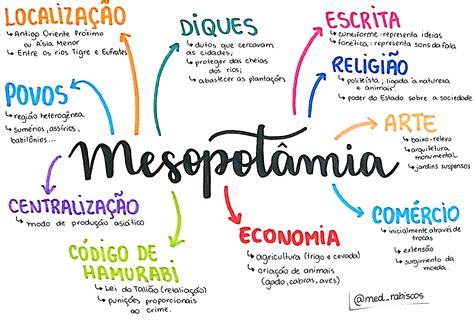 LOCALIZAÇÃO
↳ Antigo Oriente Próximo
ou Ásia Menor
↳ Entre os rios Tigre e Eufrates
DIQUES
↳ dutos que cercavam
as cidades;
↳ proteger das cheias
dos rios;
↳ abastecer as plantações
ESCRITA
↳ cuneiforme: representa ideias
↳ fonética: representa sons da fala
RELIGIÃO
↳ politeísta; ligada à natureza
e animais.
↳ poder do Estado sobre a sociedade
POVOS
↳ região heterogênea.
↳ sumérios, assírios,
babilônios...
ARTE
↳ baixo-relevo
↳ arquitetura
monumental
↳ jardins suspensos
Mesopotâmia
CENTRALIZAÇÃO
↳ modo de produção asiático
CÓDIGO DE
HAMURABI
↳ Lei do Talião (retaliação)
↳ punições proporcionais
ao crime.
ECONOMIA
↳ agricultura (trigo e cevada)
↳ criação de animais
(gado, cabras, aves)
COMÉRCIO
↳ inicialmente através de
trocas
↳ extensão
↳ surgimento da
moeda.
@med_rabiscos